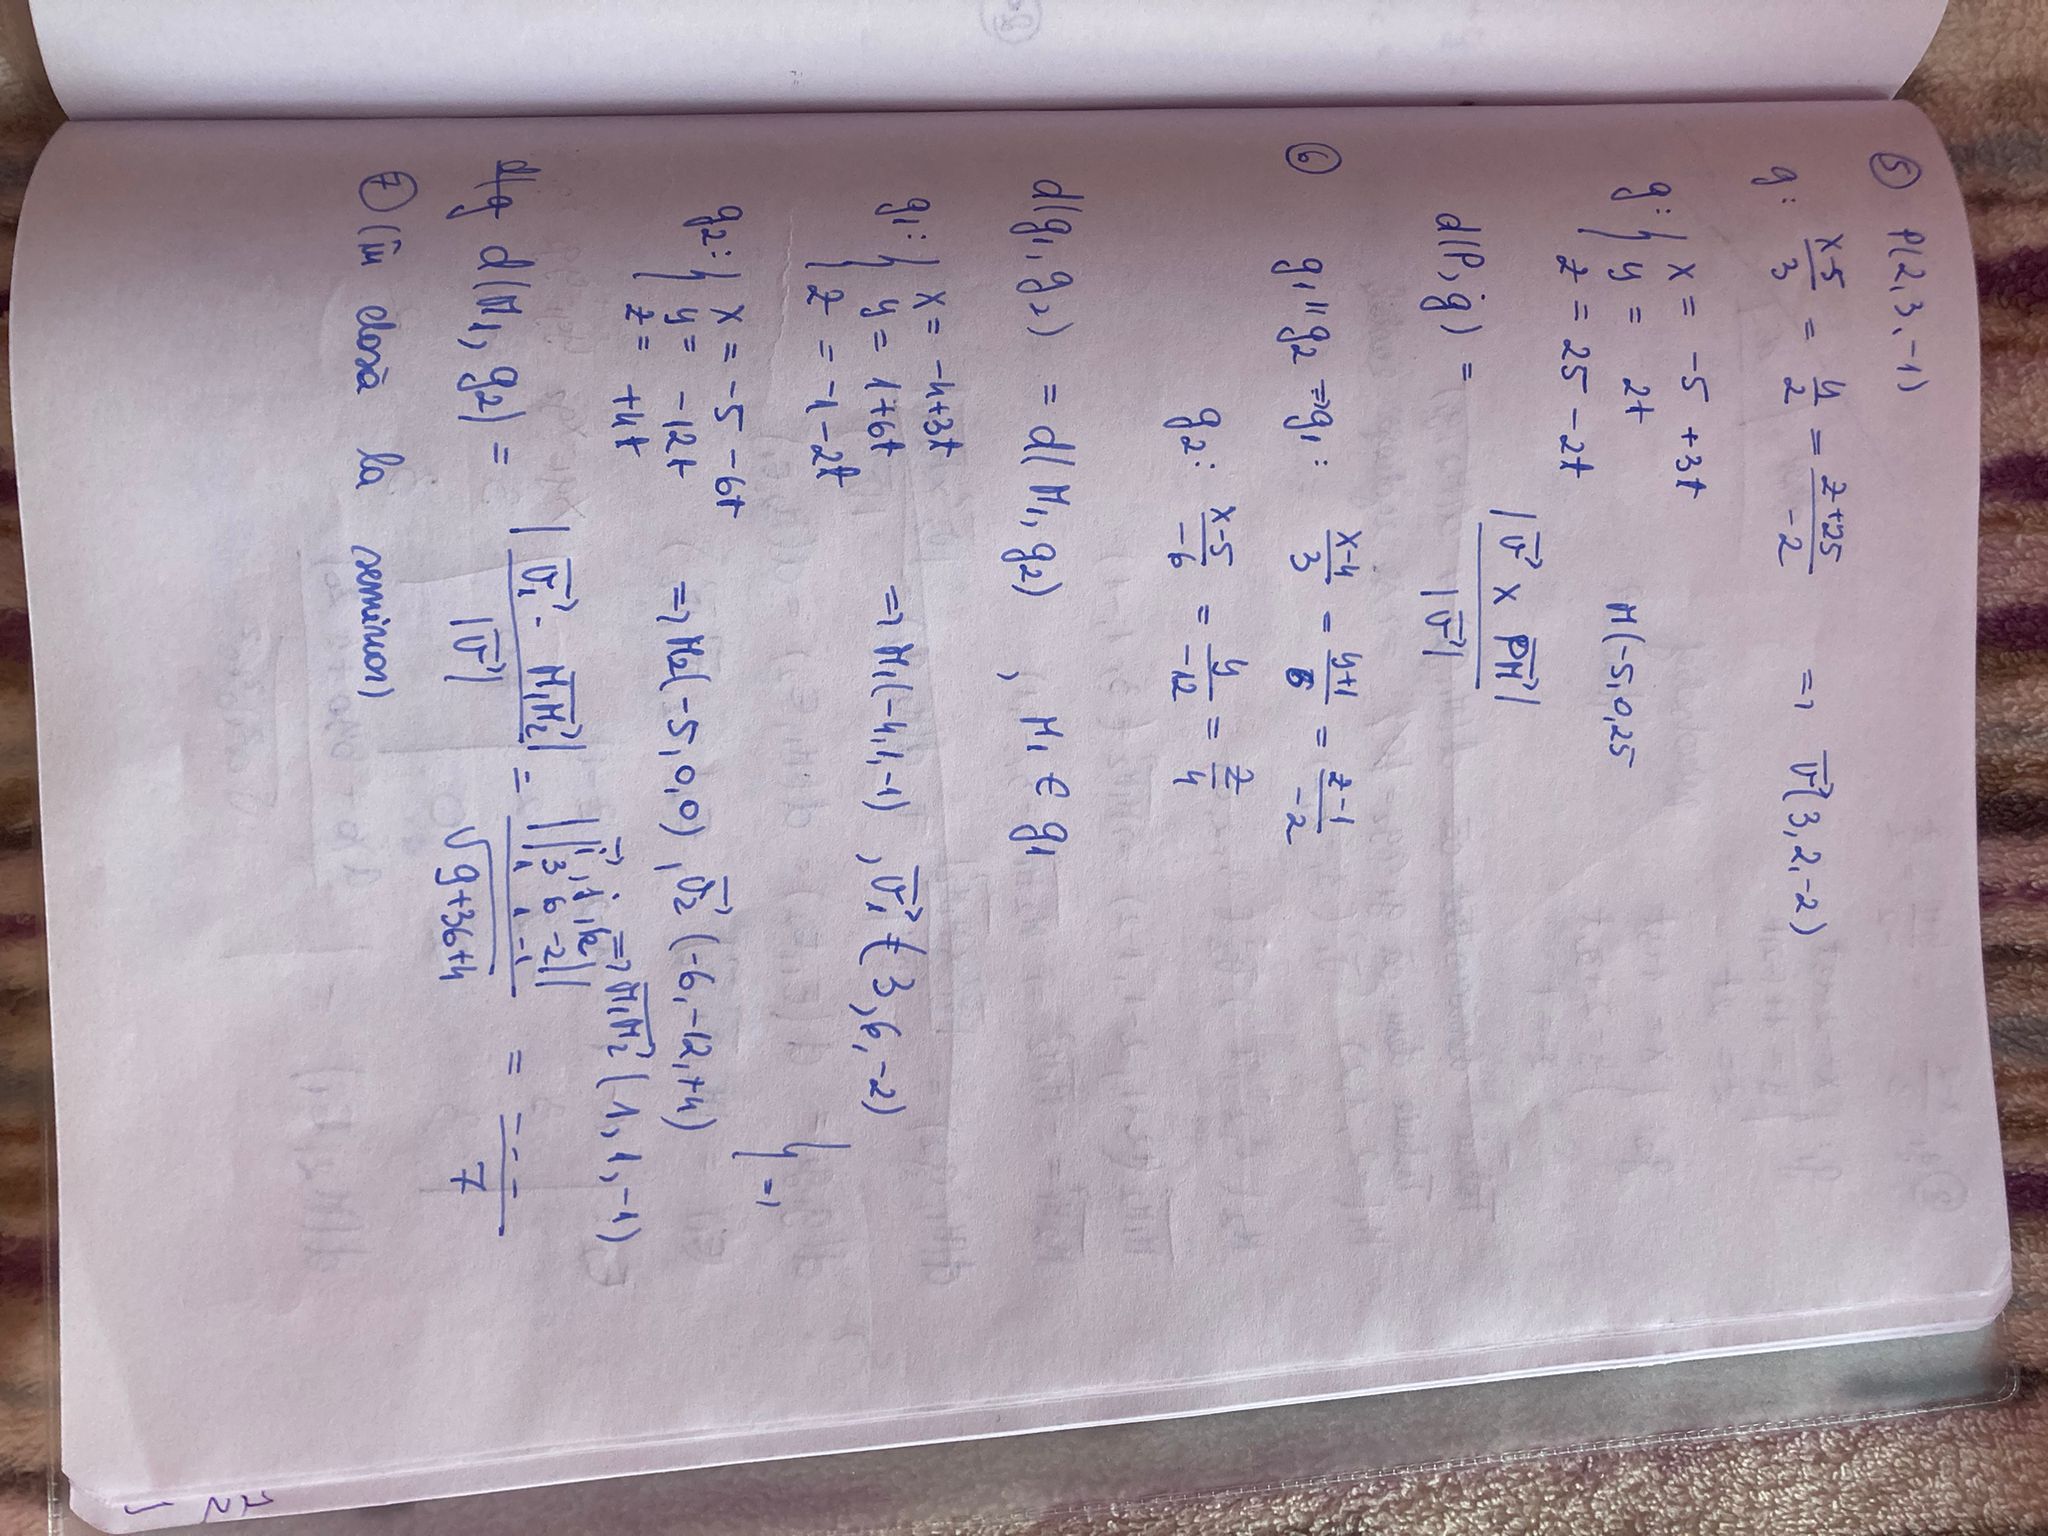 ⑤ P(2,3,-1)
g: (x-5)/3 = y/2 = (z+25)/-2 => v⃗(3,2,-2)
g: { x = -5 +3t
y = 2t M(-5,0,25
z = 25 -2t
d(P,g) = |v⃗ x PM⃗| / |v⃗|
⑥ g1 || g2 => g1: (x-4)/3 = (y+1)/6 = (z-1)/-2
g2: (x-5)/-6 = y/-12 = z/4
d(g1, g2) = d(M1, g2) , M1 ∈ g1
g1: { x = -4+3t
y = 1+6t => M1(-4,1,-1) , v1⃗ = (3,6,-2)
z = -1-2t
} =>
g2: { x = -5 -6t
y = -12t => M2(-5,0,0) , v2⃗ (-6,-12,+4)
z = +4t
=> M1M2⃗ (1,1,-1)
d(M1, g2) = |v1⃗ · M1M2⃗| / |v⃗| = ||i⃗, j, k; 3 6 -2; 1 1 -1|| / √(9+36+4) = --- / 7
⑦ (în clasă la seminar)